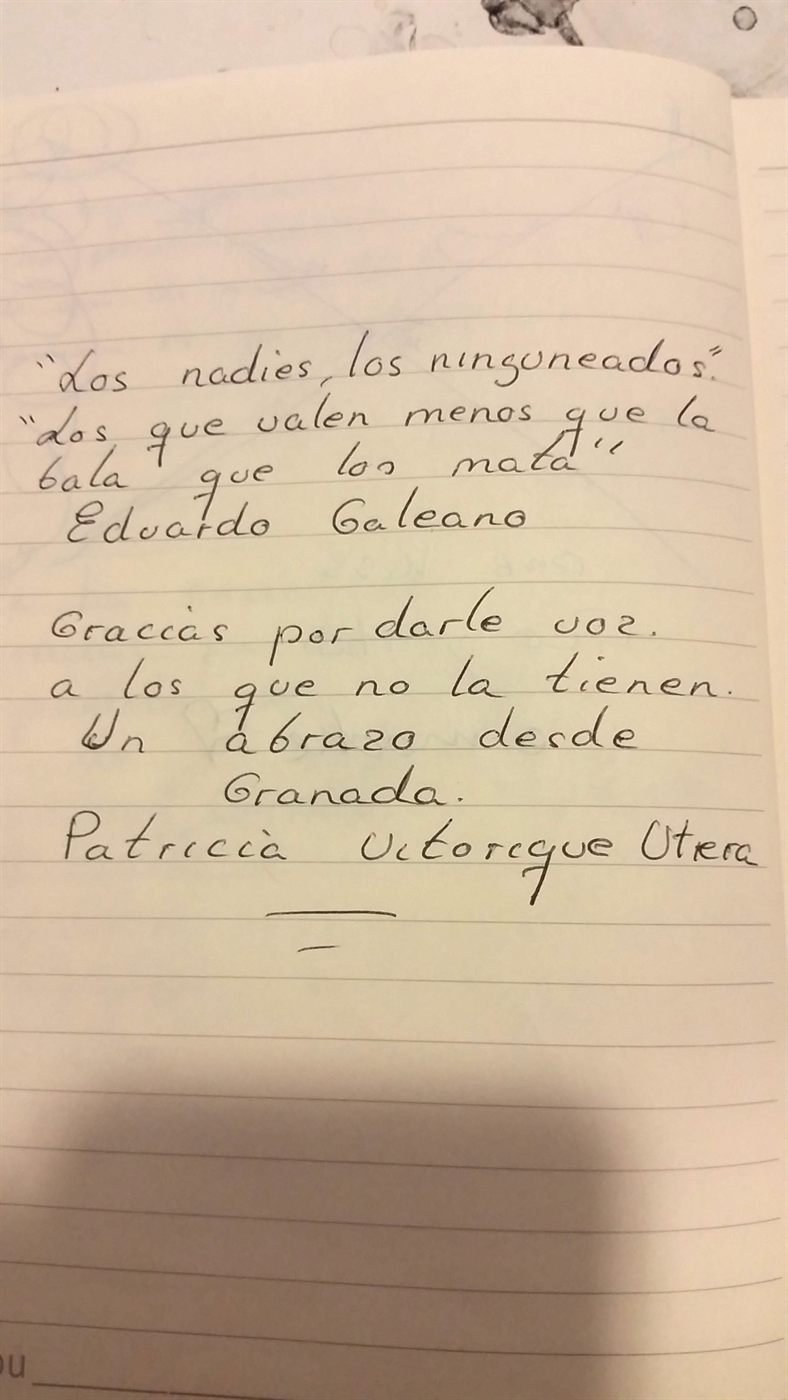 "Los nadies, los ninguneados".
"Los que valen menos que la
bala que los mata"
Eduardo Galeano
Gracias por darle voz.
a los que no la tienen.
Un abrazo desde
Granada.
Patricia Vitorique Utrera
ou